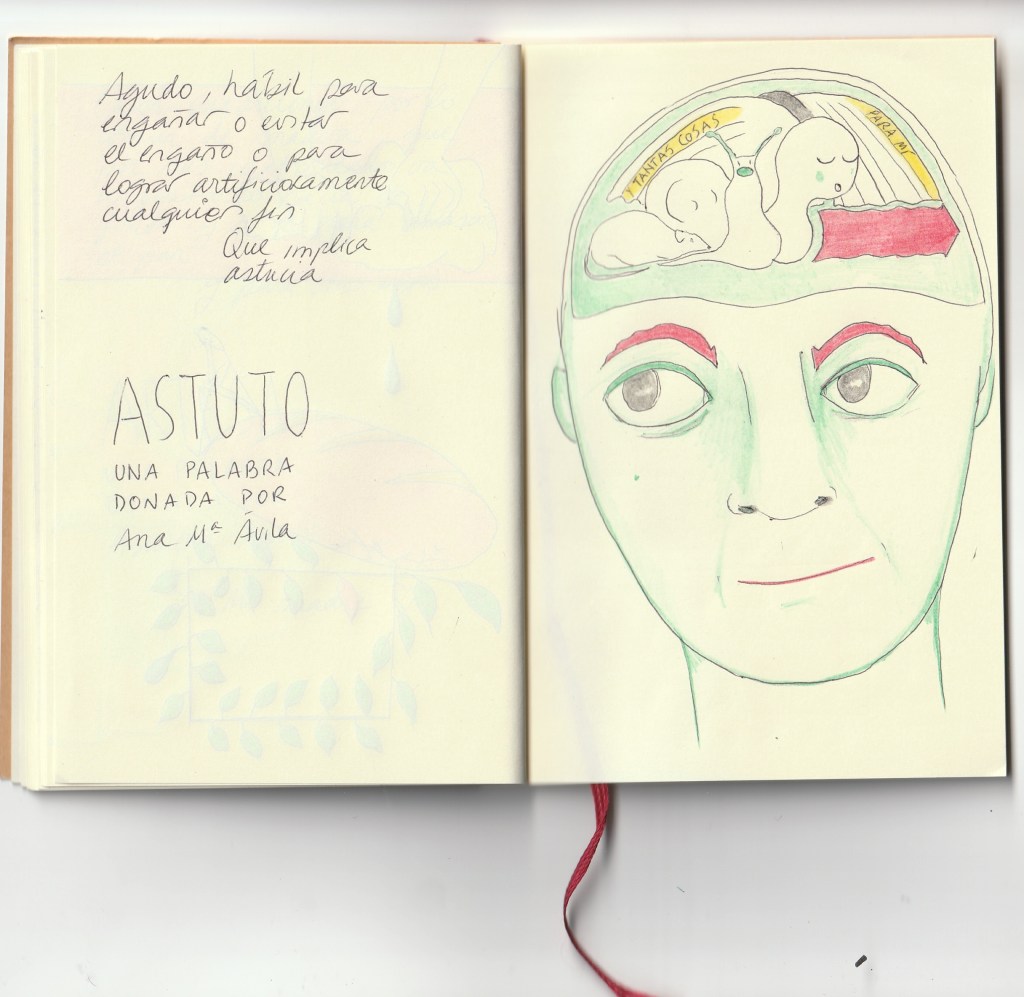 Agudo, hábil para
engañar o evitar
el engaño o para
lograr artificiosamente
cualquier fin
Que implica
astucia
ASTUTO
UNA PALABRA
DONADA POR
Ana Mª Ávila
Y TANTAS COSAS
PARA MÍ